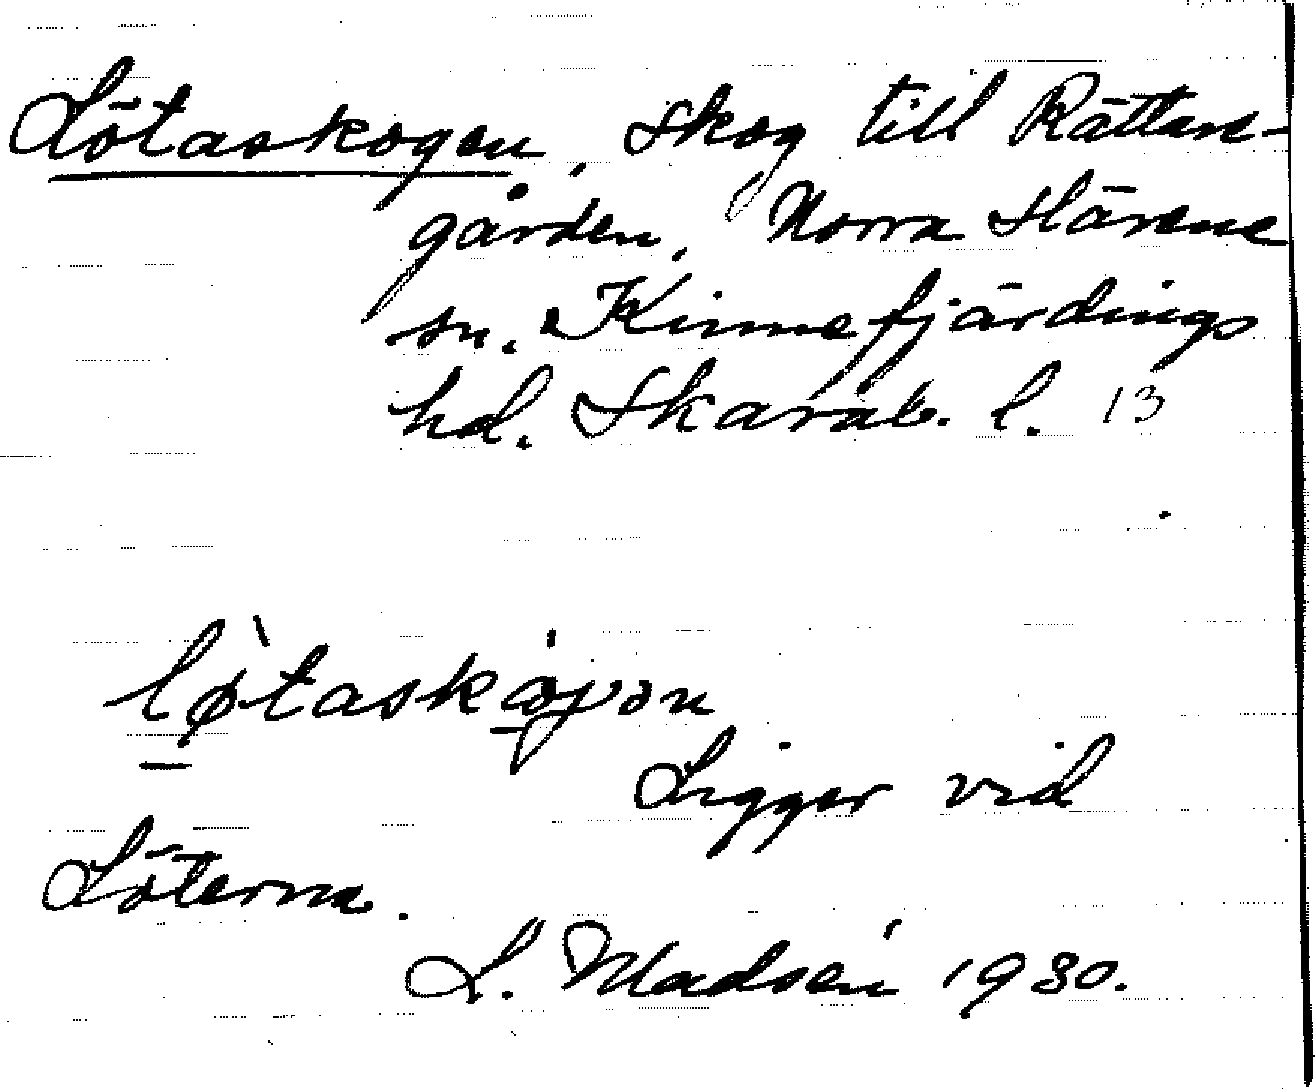 Lötaskogen, Skog till Rättare-
gården, Norra Härene
sn. Kinnefjärdings
hd. Skarab. l. 13
Ligger vid
Löterna.
L. Madsén 1930.